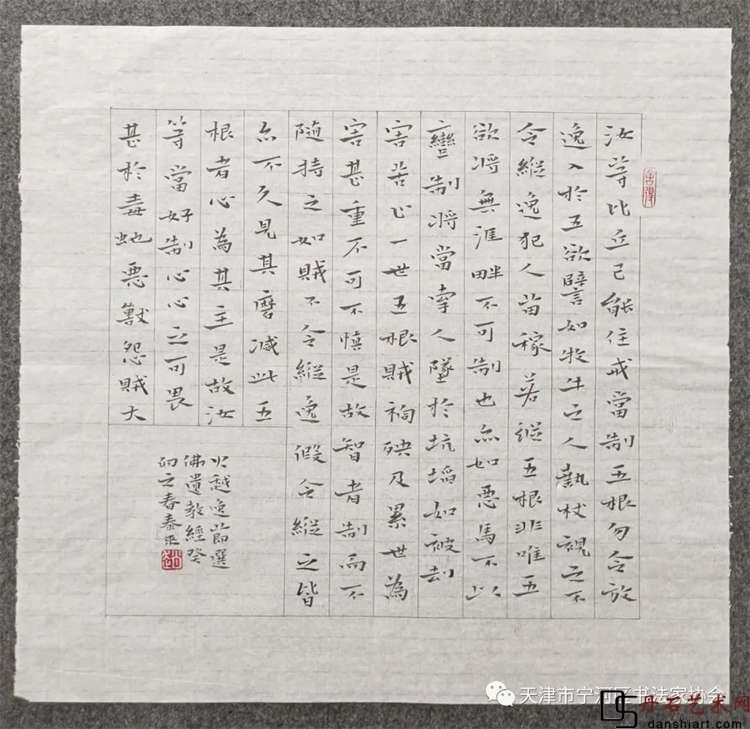 汝等比丘已能住戒當制五根勿令放
逸入於五欲譬如牧牛之人執杖視之不
令縱逸犯人苗稼若縱五根非唯五
欲將無涯畔不可制也亦如惡馬不以
轡制將當牽人墜於坑埳如被劫
害苦止一世五根賊禍殃及累世為
害甚重不可不慎是故智者制而不
隨持之如賊不令縱逸假令縱之皆
亦不久見其磨滅此五
根者心為其主是故汝
等當好制心心之可畏
甚於毒蛇惡獸怨賊大
火越逸節選
佛遺教經癸
卯之春泰
天津市宁河区书法家协会
丹石艺术网
danshiart.com